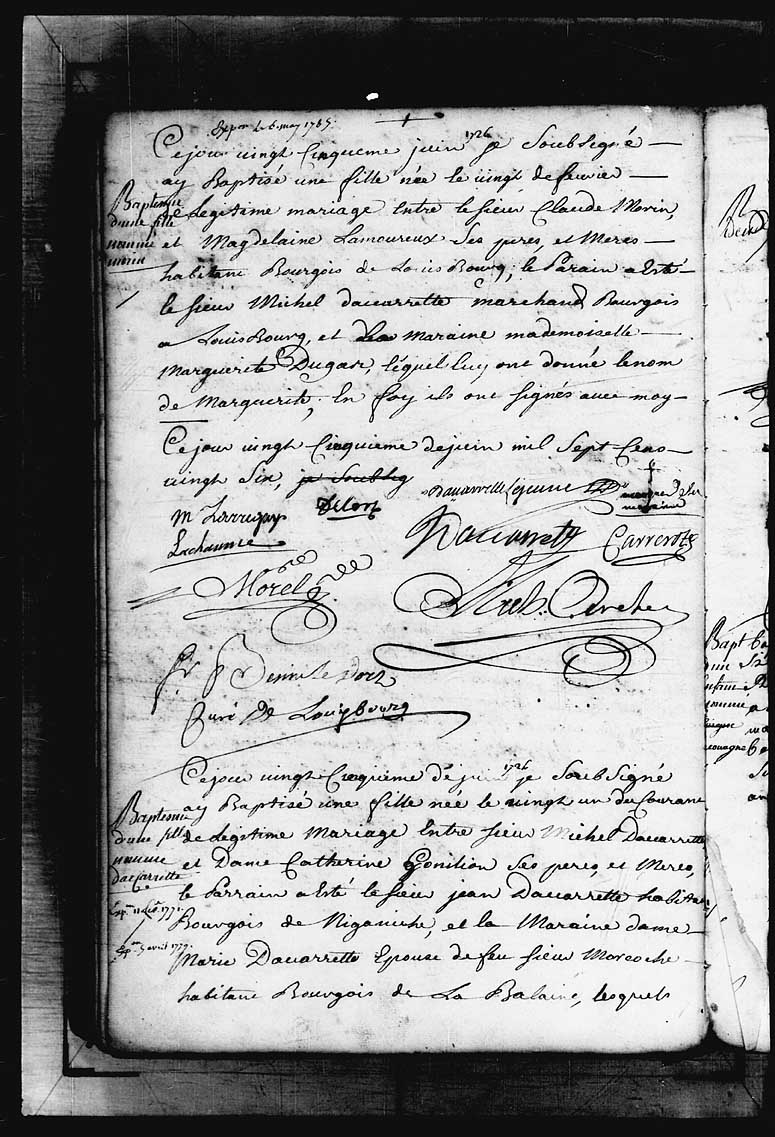 Expon le 6 may 1785
Ce jour vingt Cinqueme juin 1726 je Soubsigné
ay Baptisé une fille née le vingt de feuvier
de Legitame mariage Entre le sieur Claude Morin,
et Magdelaine Lamoureux Ses peres, et Meres
habitant Bourgois de Louis Bourg; le Parain a Esté
le sieur Michel dacarrette marchand Bourgois
a Louis Bourg, et La maraine mademoiselle
Marguerite Dugas, léquel luy ont donné le nom
de Marguerite; En foy ils ont signés avec moy
Baptesme
d'une fille
nommée
morin
Ce jour vingt Cinquieme de juin mil Sept Cens
vingt Six, je Soubsig
Lachaume
Daccarrette
Carrerot
Morel
curé De Louisbourg
Ce jour vingt Cinquieme de juin 1726 je Soubsigné
ay Baptisé une fille née le vingt un du Courant
de Legitame Mariage Entre sieur Michel Dacarrette
et Dame Catherine Gonillon Ses peres, et Meres,
le Parrain a Esté le sieur jean Dacarrette habitant
Bourgois de Niganiche, et la Maraine dame
Marie Dacarrette Epouse de feu sieur
habitant Bourgois de La Balaine, lesquels
Baptesme
d'une fille
nommée
daccarrette
1771
avril 1777
Bapt